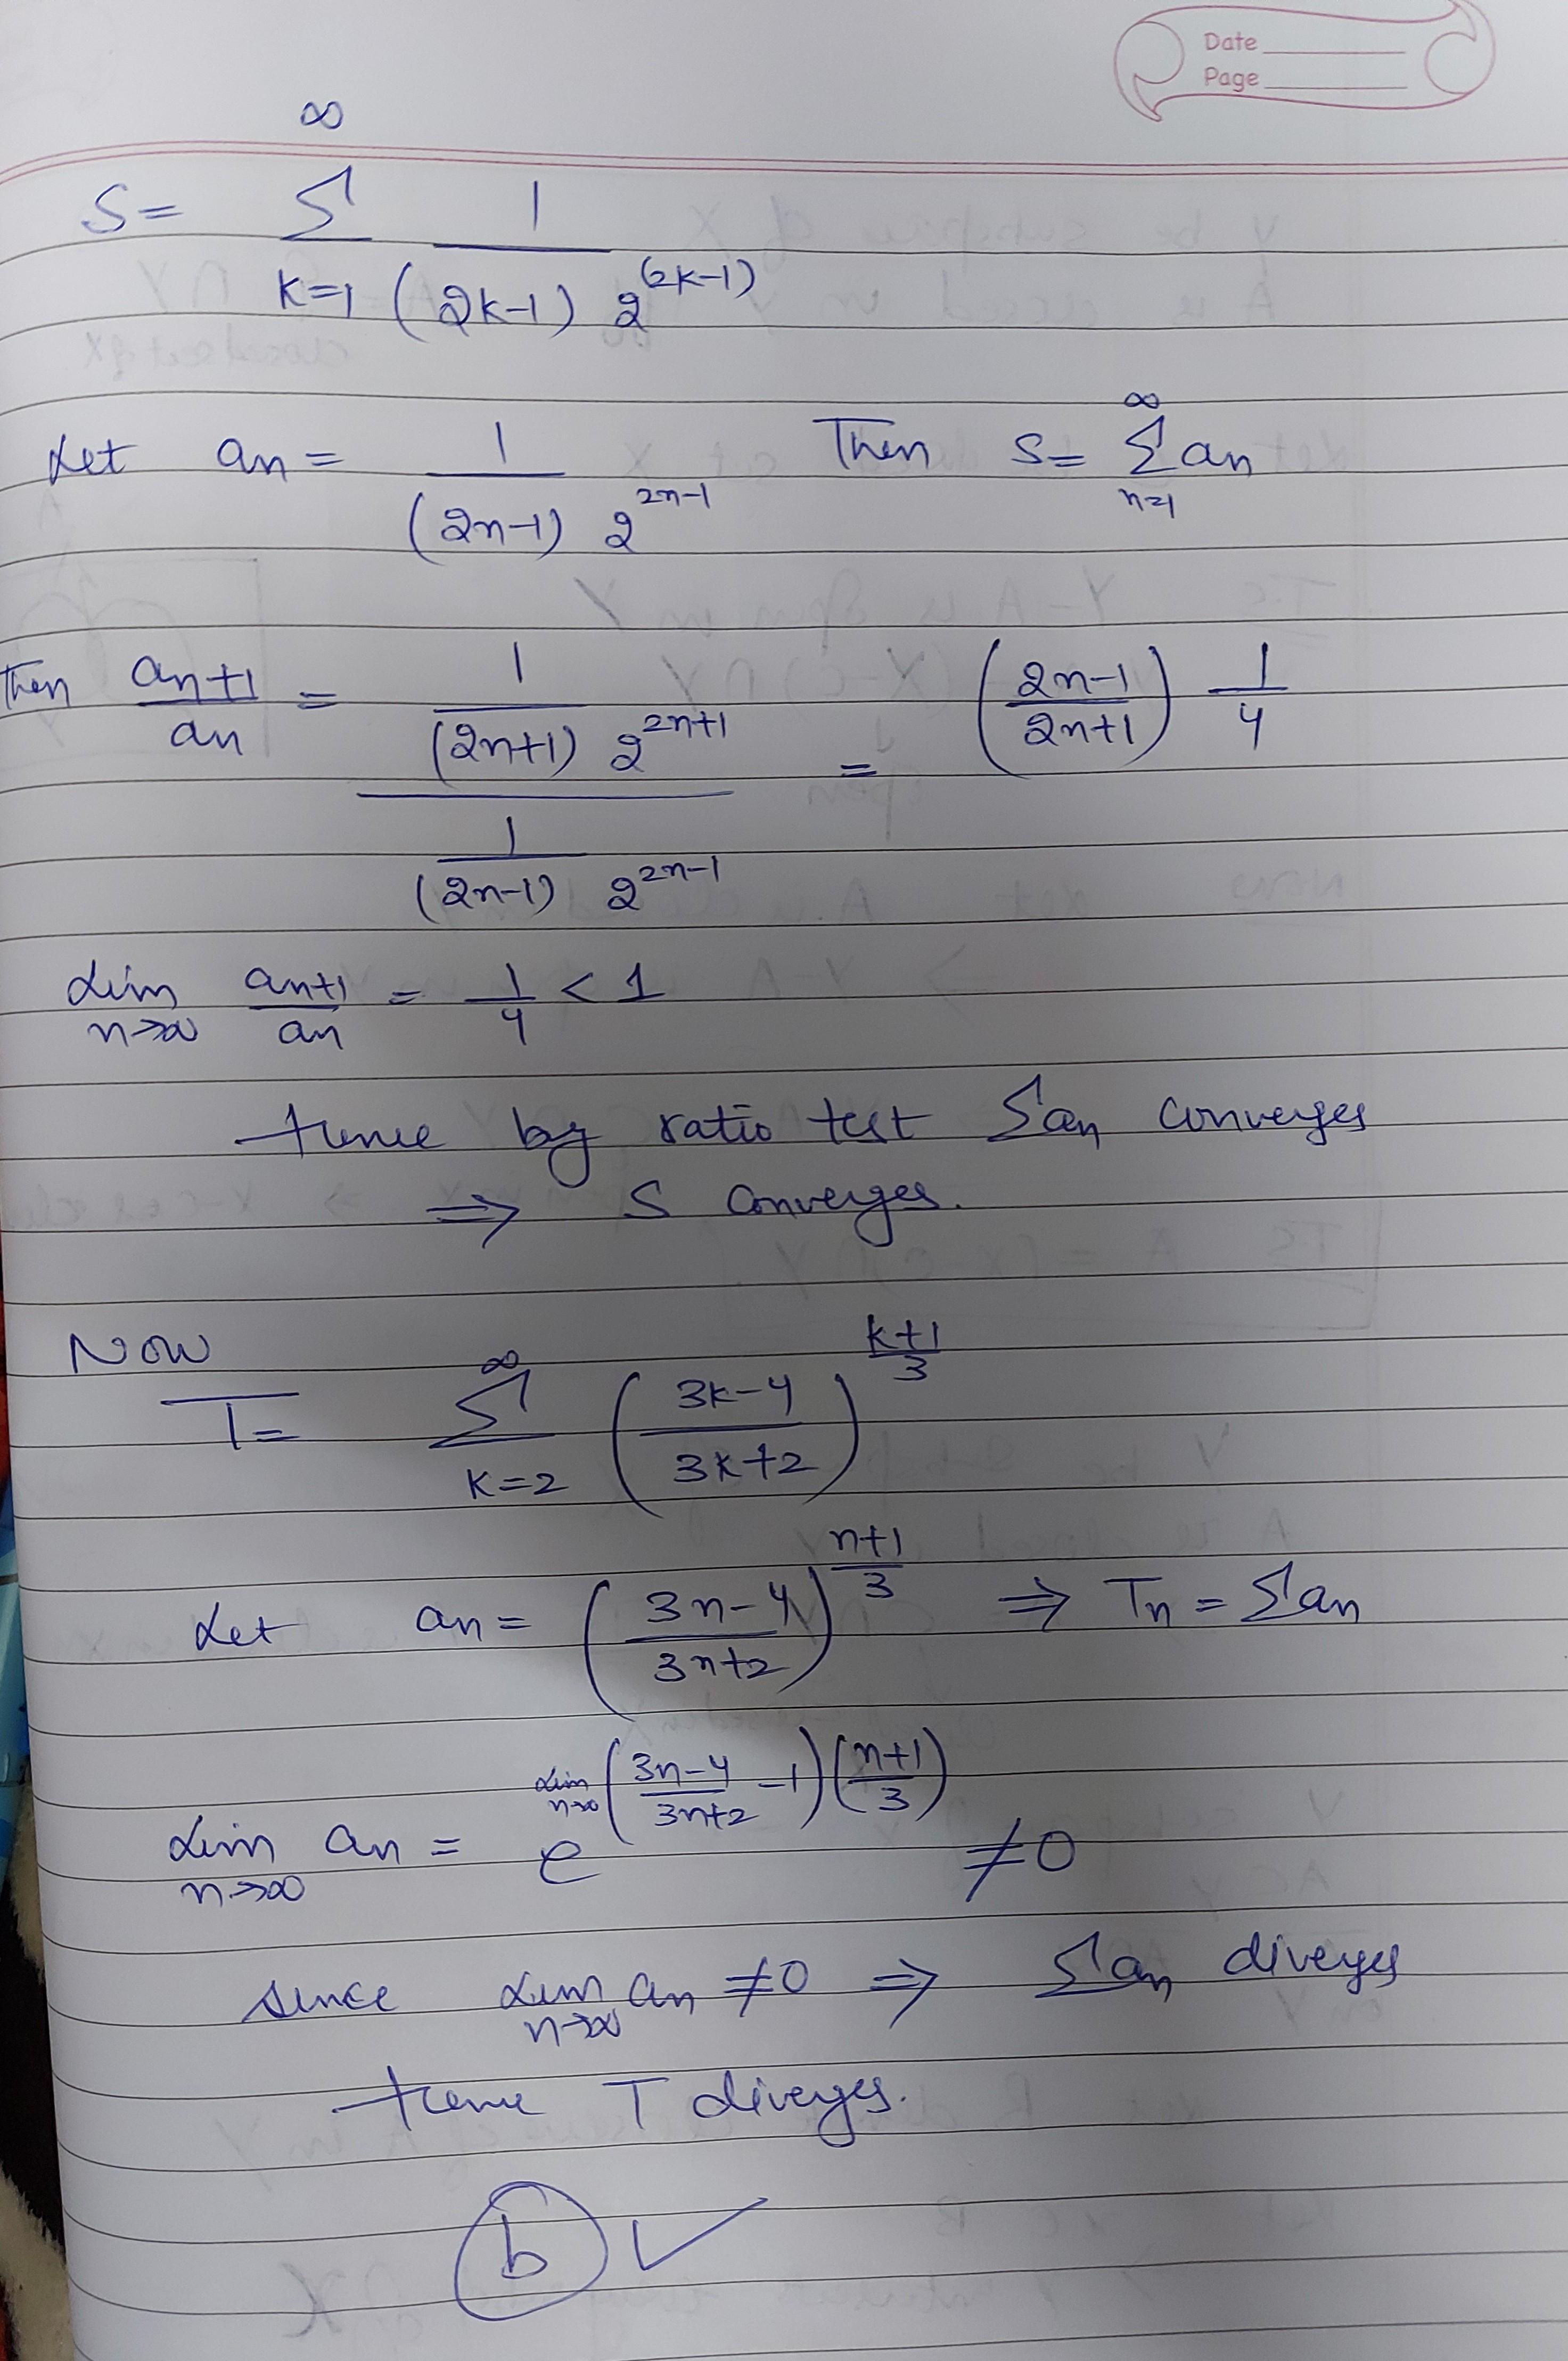 Date
Page
S = ∞ Σ k=1 1 / (2k-1) 2^(2k-1)
Let an = 1 / (2n-1) 2^2n-1 Then S = ∞ Σ n=1 an
Then an+1 / an = 1 / (2n+1) 2^2n+1 / 1 / (2n-1) 2^2n-1 = (2n-1 / 2n+1) 1/4
Lim n→∞ an+1 / an = 1/4 < 1
Hence by ratio test Σan converges
⇒ S converges.
Now
T = ∞ Σ k=2 (3k-4 / 3k+2)^k+1/3
Let an = (3n-4 / 3n+2)^n+1/3 ⇒ Tn = Σan
Lim n→∞ an = e^Lim n→∞ (3n-4 / 3n+2 - 1)(n+1 / 3) ≠ 0
Since Lim n→∞ an ≠ 0 ⇒ Σan diverges
Hence T diverges.
b ✓